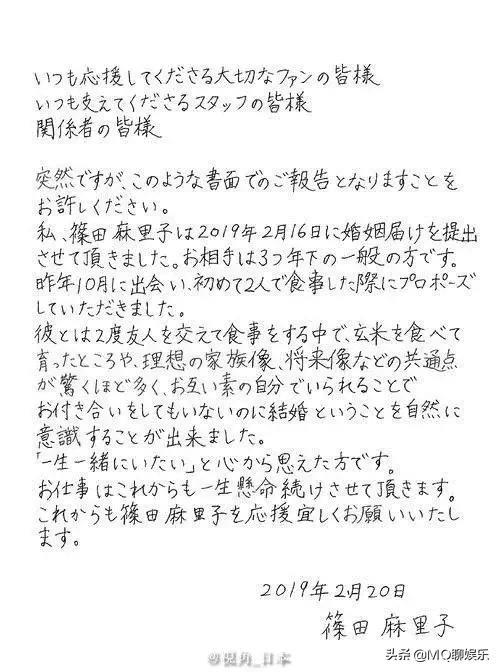 いつも応援してくださる大切なファンの皆様
いつも支えてくださるスタッフの皆様
関係者の皆様
突然ですが、このような書面でのご報告となりますことを
お許しください。
私、篠田麻里子は2019年2月16日に婚姻届けを提出
させて頂きました。お相手は3つ年下の一般の方です。
昨年10月に出会い、初めて2人で食事した際にプロポーズ
していただきました。
彼とは2度友人を交えて食事をする中で、玄米を食べて
育ったところや、理想の家族像、将来像などの共通点
が驚くほど多く、お互い素の自分でいられることで
お付き合いをしてもいないのに結婚ということを自然に
意識することが出来ました。
「一生一緒にいたい」と心から思えた方です。
お仕事はこれからも一生懸命続けさせて頂きます。
これからも篠田麻里子を応援宜しくお願いいたし
ます。
2019年2月20日
篠田 麻里子
@視角_日本
头条 @MO聊娱乐